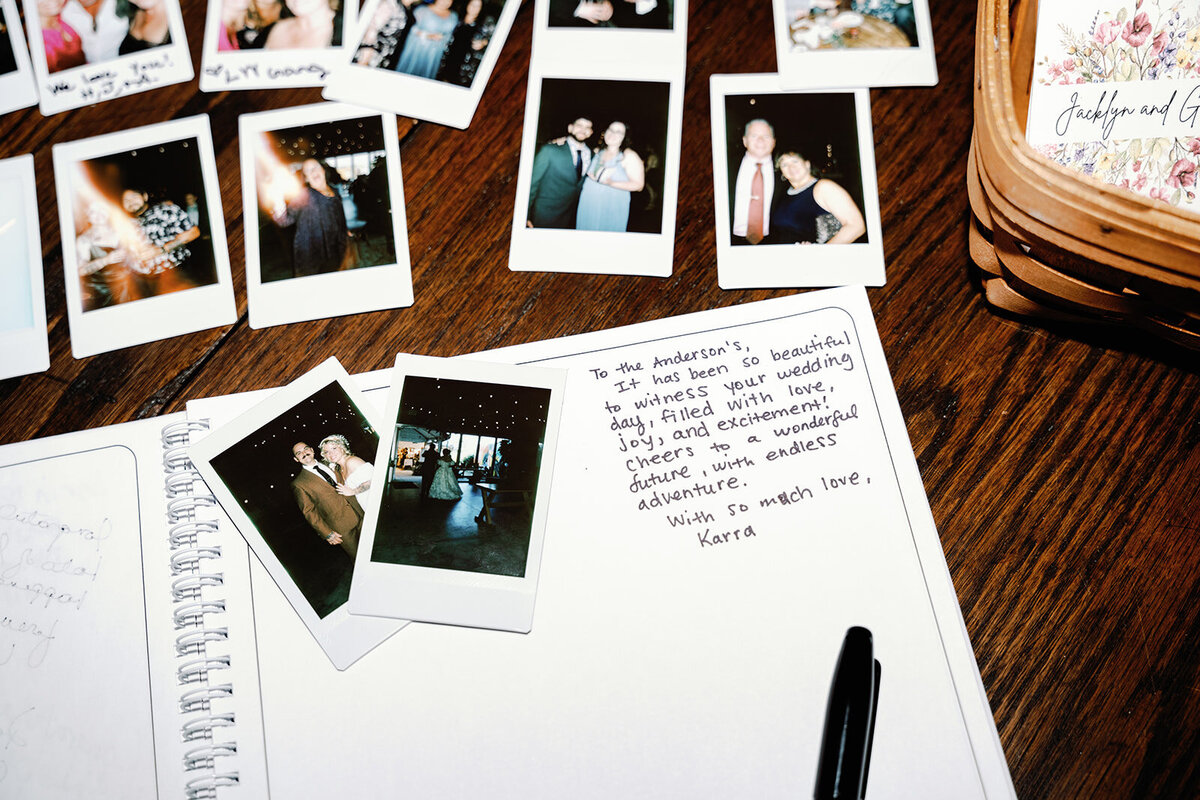 We Love you!
Jacklyn and G
To the Anderson's,
It has been so beautiful
to witness your wedding
day, filled with love,
joy, and excitement!
cheers to a wonderful
future, with endless
adventure.
With so much love,
Karra